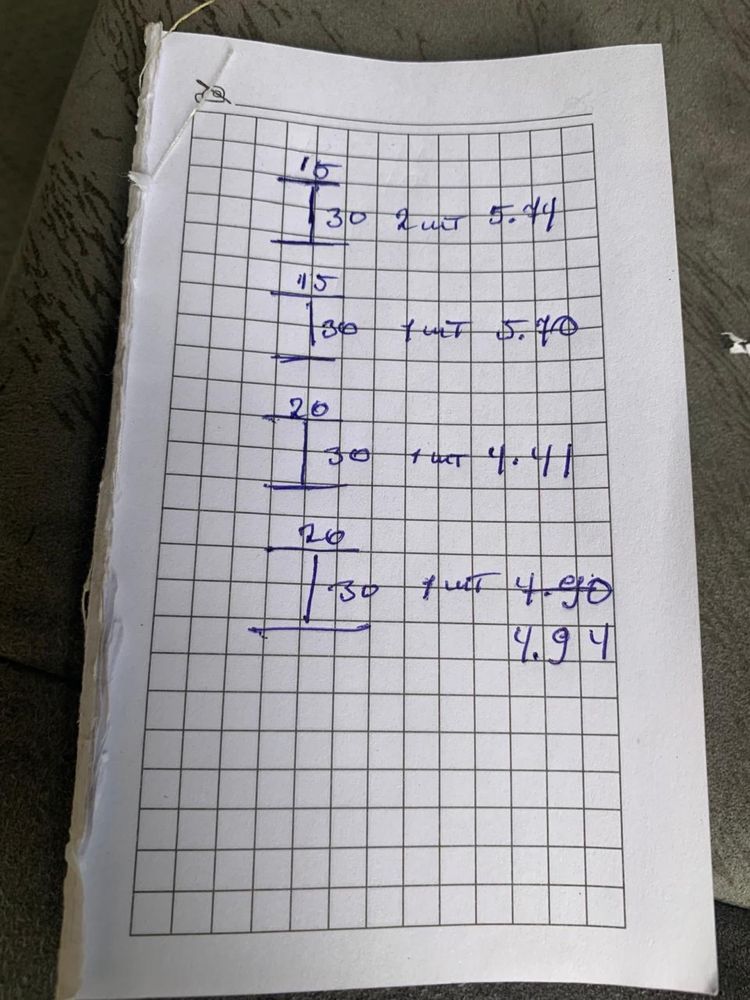 15
30 2 шт 5.74
15
30 1 шт 5.70
20
30 1 шт 4.41
20
30 1 шт 4.90
4.94